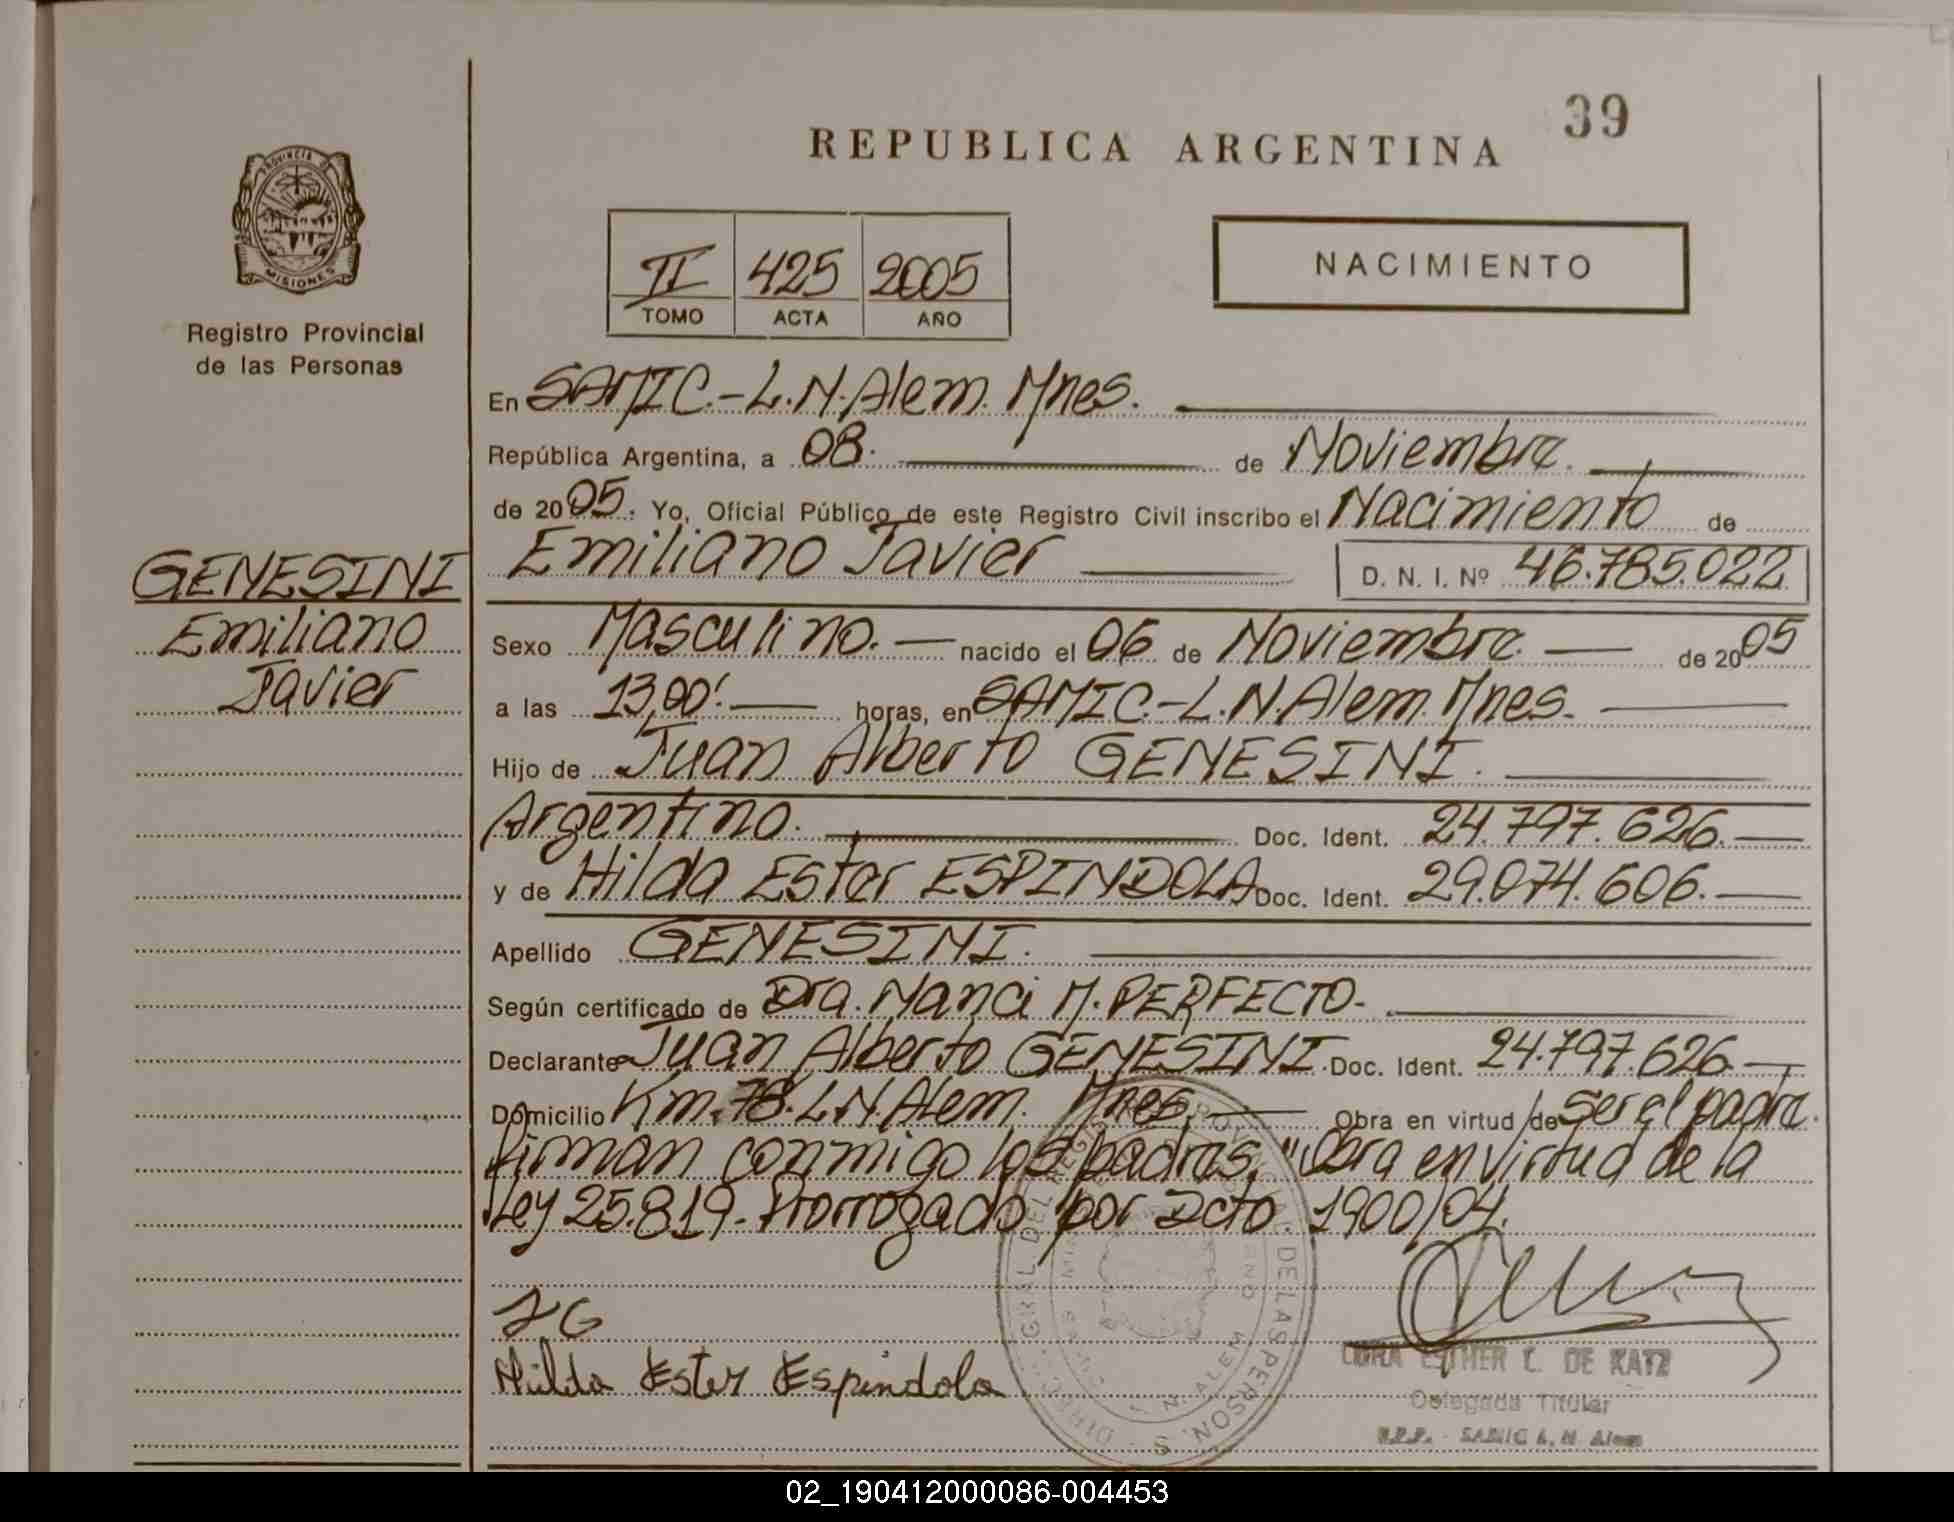 39
REPUBLICA ARGENTINA
PROVINCIA DE
MISIONES
Registro Provincial
de las Personas
II 425 2005
TOMO ACTA AÑO
NACIMIENTO
En SAMIC.-L.N.Alem. Mnes.
República Argentina, a 08. de Noviembre.
de 2005. Yo, Oficial Público de este Registro Civil inscribo el Nacimiento de
Emiliano Javier D. N. I. Nº 46.785.022
GENESINI
Emiliano
Javier
Sexo Masculino. nacido el 06 de Noviembre. de 2005
a las 13,00'. horas, en SAMIC.-L.N.Alem. Mnes.
Hijo de Juan Alberto GENESINI.
Argentino. Doc. Ident. 24.797.626.
y de Hilda Ester ESPINDOLA Doc. Ident. 29.074.606.
Apellido GENESINI.
Según certificado de Dra. Nanci M. PERFECTO.
Declarante Juan Alberto GENESINI. Doc. Ident. 24.797.626.
Domicilio Km. 78. L.N.Alem. Mnes. Obra en virtud de ser el padre.
firman conmigo los padres. "Obra en virtud de la
Ley 25.819. Prorrogado por Dcto 1900/04.
JG
Hilda Ester Espindola
DE LAS PERSONAS
N. ALEM
ESTHER DE KATZ
Delegada Titular
R.P.P. - SAMIC L. N. Alem
02_190412000086-004453